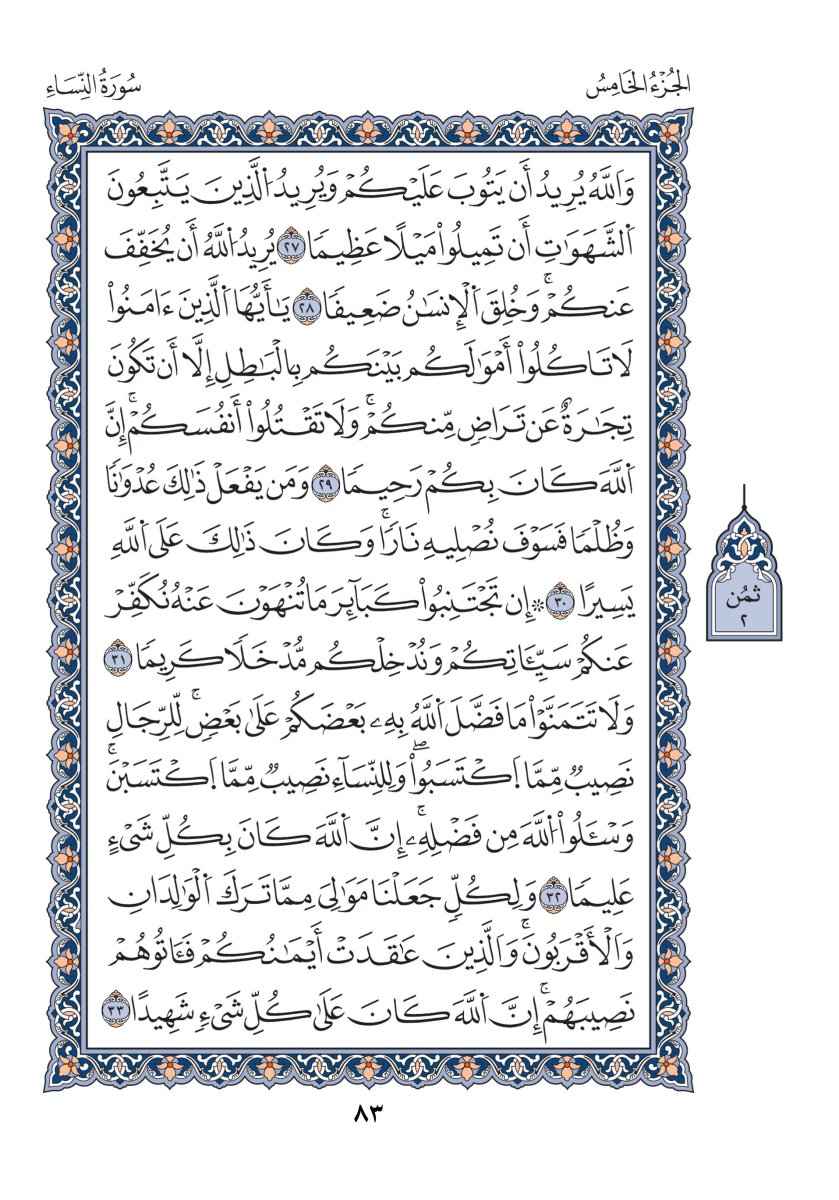 الجُزْءُ الخَامِسُ
سُورَةُ النِّسَاءِ
وَاللَّهُ يُرِيدُ أَن يَتُوبَ عَلَيْكُمْ وَيُرِيدُ اُلَّذِينَ يَتَّبِعُونَ
اَلشَّهَوَٰتِ أَن تَمِيلُواْ مَيْلًا عَظِيمًا ٢٧ يُرِيدُ اُللَّهُ أَن يُخَفِّفَ
عَنكُمْۚ وَخُلِقَ اَلْإِنسَٰنُ ضَعِيفًا ٢٨ يَٰأَيُّهَا اَلَّذِينَ ءَامَنُواْ
لَا تَاكُلُواْ أَمْوَٰلَكُم بَيْنَكُم بِالْبَٰطِلِ إِلَّا أَن تَكُونَ
تِجَٰرَةٌ عَن تَرَاضٍ مِّنكُمْۚ وَلَا تَقْتُلُواْ أَنفُسَكُمْۚ إِنَّ
اَللَّهَ كَانَ بِكُمْ رَحِيمًا ٢٩ وَمَن يَفْعَلْ ذَٰلِكَ عُدْوَٰنًا
وَظُلْمًا فَسَوْفَ نُصْلِيهِ نَارًاۚ وَكَانَ ذَٰلِكَ عَلَى اَللَّهِ
يَسِيرًا ٣٠ ۞ إِن تَجْتَنِبُواْ كَبَآئِرَ مَا تُنْهَوْنَ عَنْهُ نُكَفِّرْ
عَنكُمْ سَيِّـَٔاتِكُمْ وَنُدْخِلْكُم مُّدْخَلًا كَرِيمًا ٣١
وَلَا تَتَمَنَّوْاْ مَا فَضَّلَ اَللَّهُ بِهِۦ بَعْضَكُمْ عَلَىٰ بَعْضٍۚ لِّلرِّجَالِ
نَصِيبٌ مِّمَّا اَكْتَسَبُواْۖ وَلِلنِّسَآءِ نَصِيبٌ مِّمَّا اَكْتَسَبْنَۚ
وَسْـَٔلُواْ اُللَّهَ مِن فَضْلِهِۦۚ إِنَّ اَللَّهَ كَانَ بِكُلِّ شَىْءٍ
عَلِيمًا ٣٢ وَلِكُلٍّ جَعَلْنَا مَوَٰلِىَ مِمَّا تَرَكَ اَلْوَٰلِدَانِ
وَالْأَقْرَبُونَۚ وَالَّذِينَ عَٰقَدَتْ أَيْمَٰنُكُمْ فَـَٔاتُوهُمْ
نَصِيبَهُمْۚ إِنَّ اَللَّهَ كَانَ عَلَىٰ كُلِّ شَىْءٍ شَهِيدًا ٣٣
ثُمُن
٢
٨٣